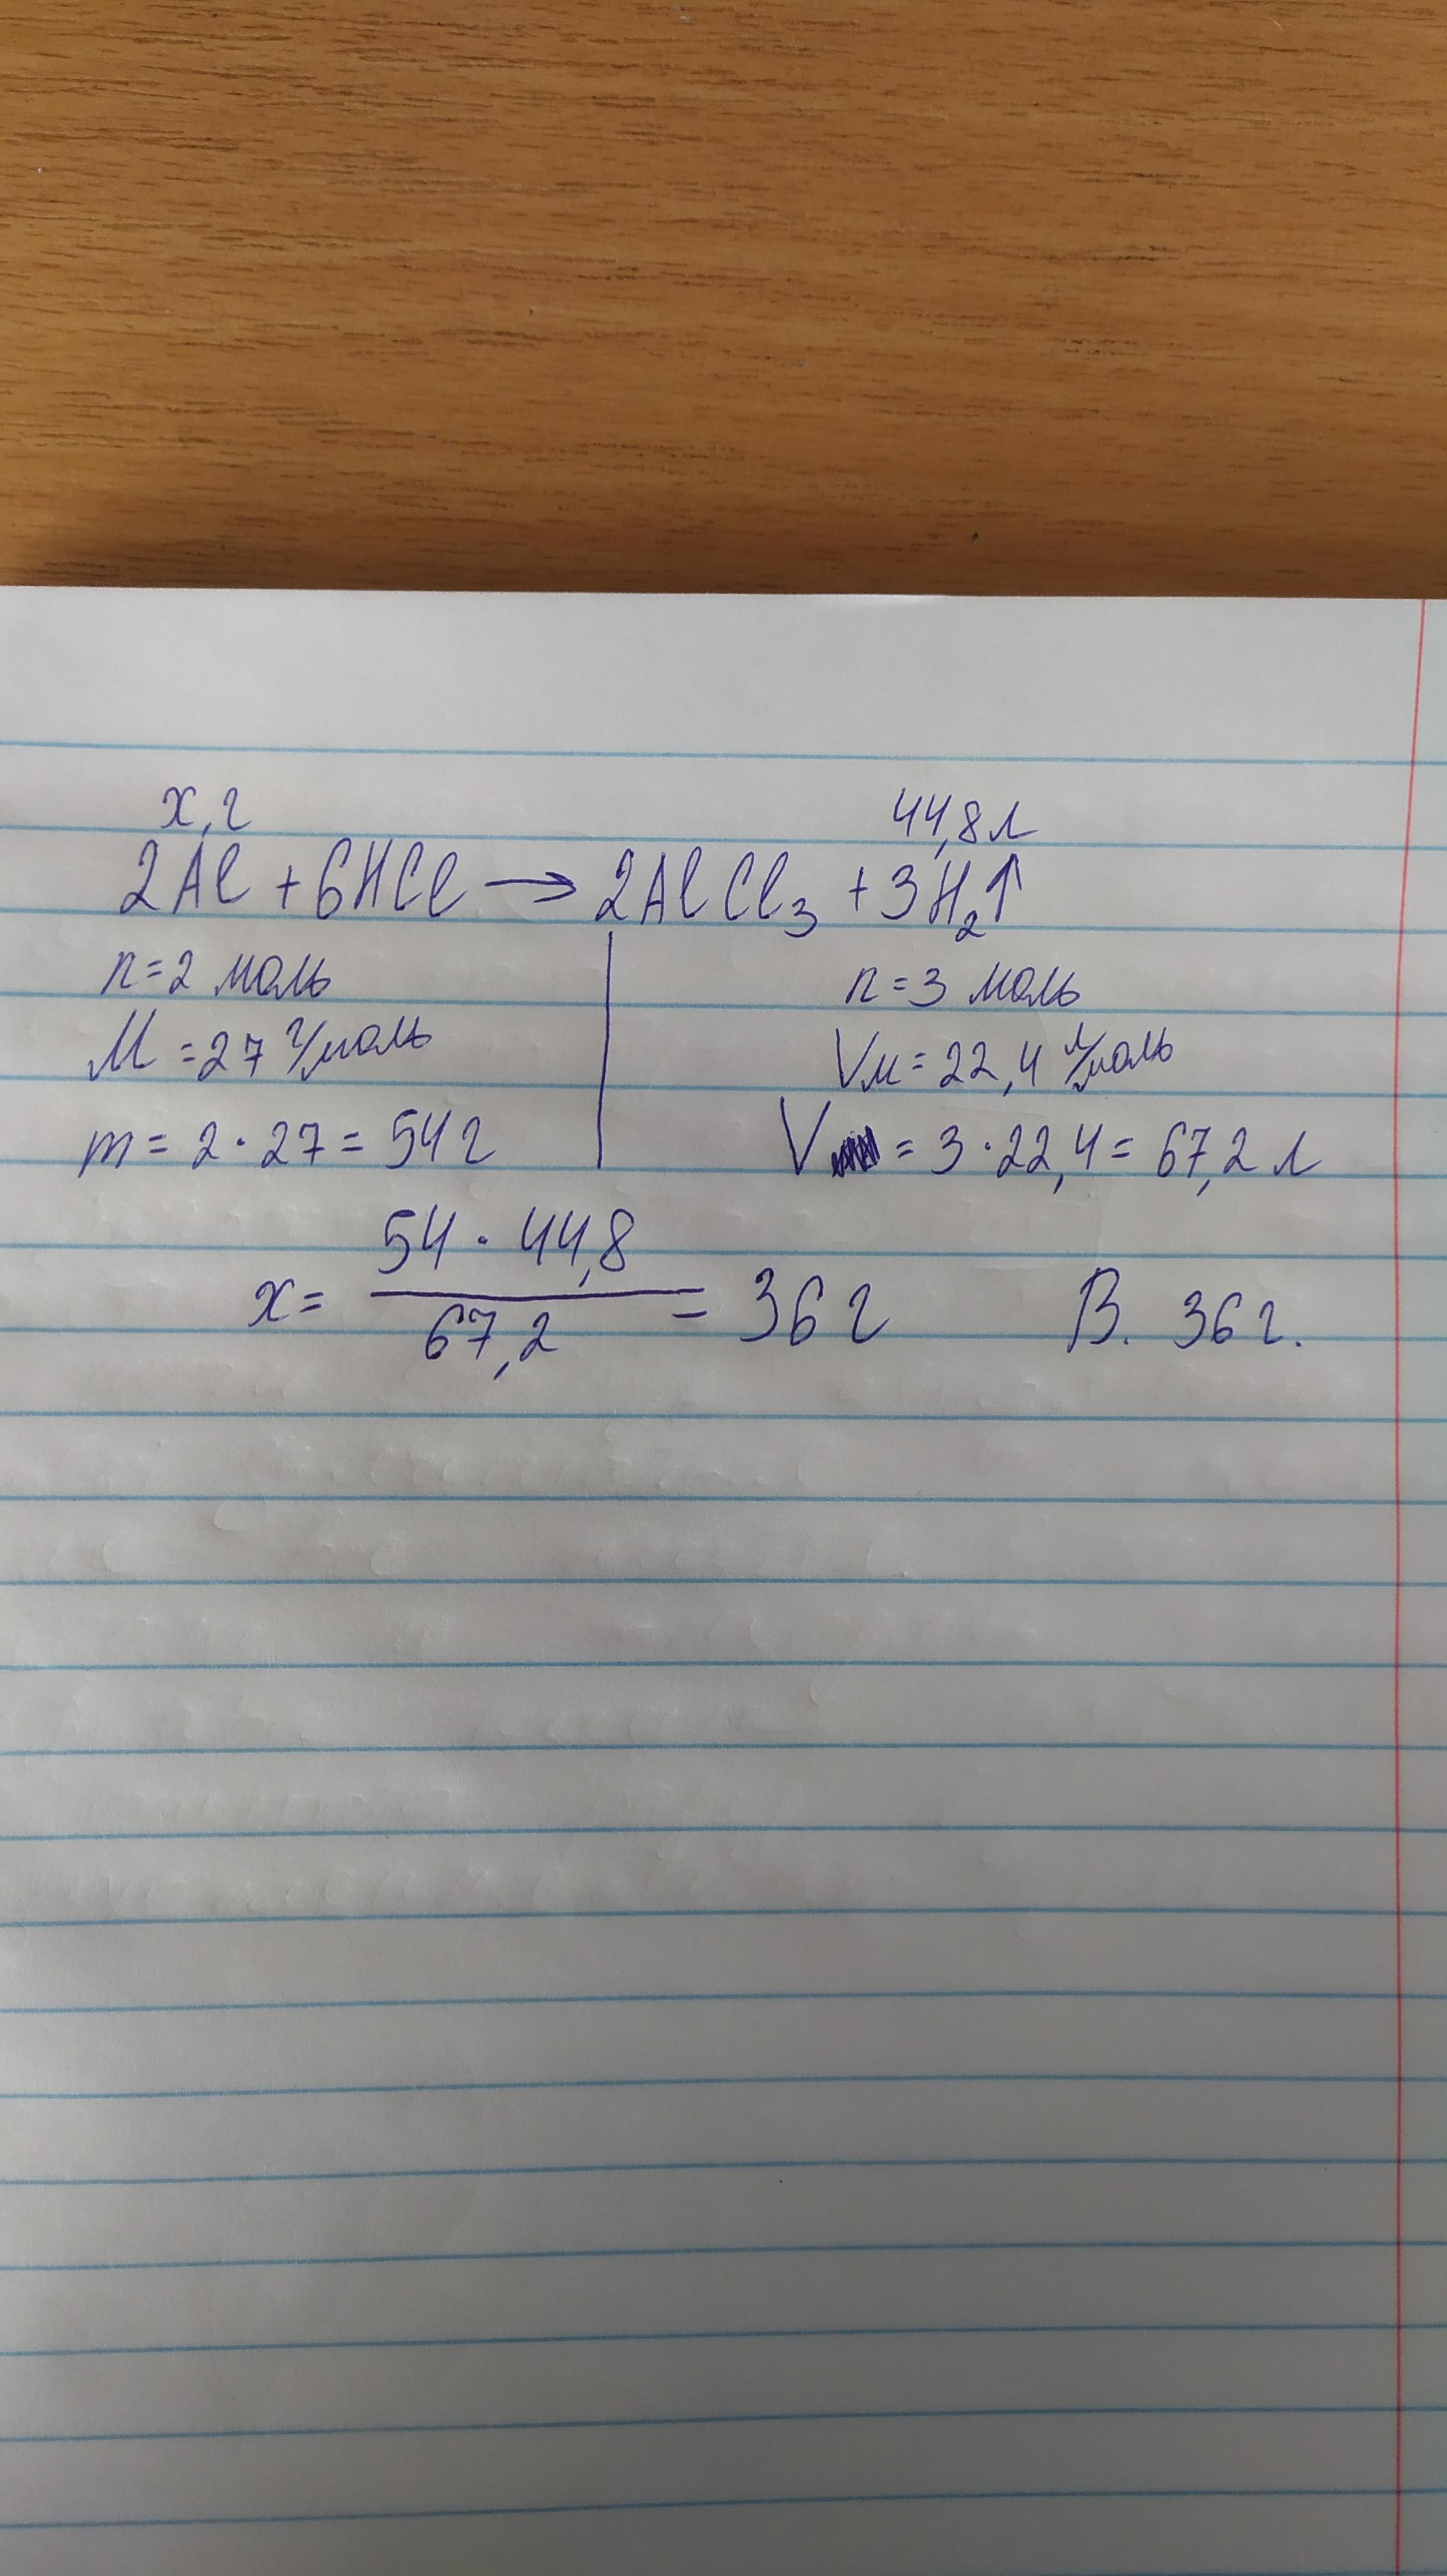 х, г 44,8 л
2Al + 6HCl → 2AlCl₃ + 3H₂↑
n = 2 моль n = 3 моль
M = 27 г/моль Vм = 22,4 л/моль
m = 2 · 27 = 54 г V = 3 · 22,4 = 67,2 л
x = 54 · 44,8 / 67,2 = 36 г В. 36 г.